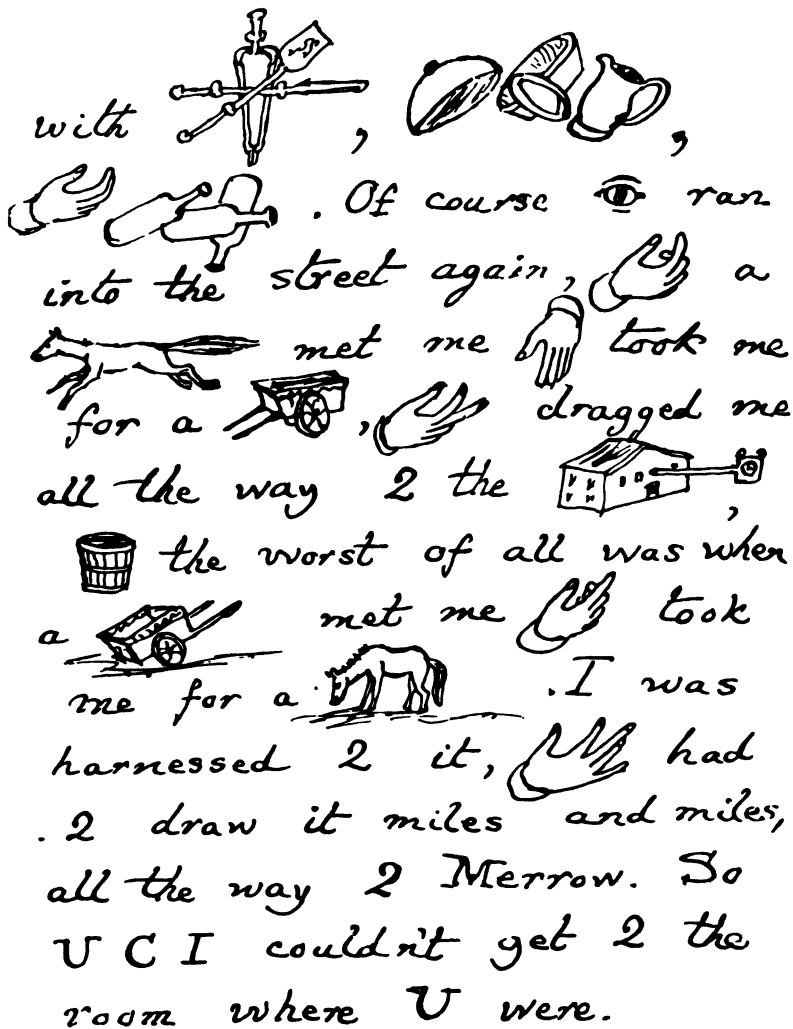 with , ,
. Of course ran
into the street again, a
met me took me
for a , dragged me
all the way 2 the ,
the worst of all was when
a met me took
me for a . I was
harnessed 2 it, had
. 2 draw it miles and miles,
all the way 2 Merrow. So
U C I couldn't get 2 the
room where U were.